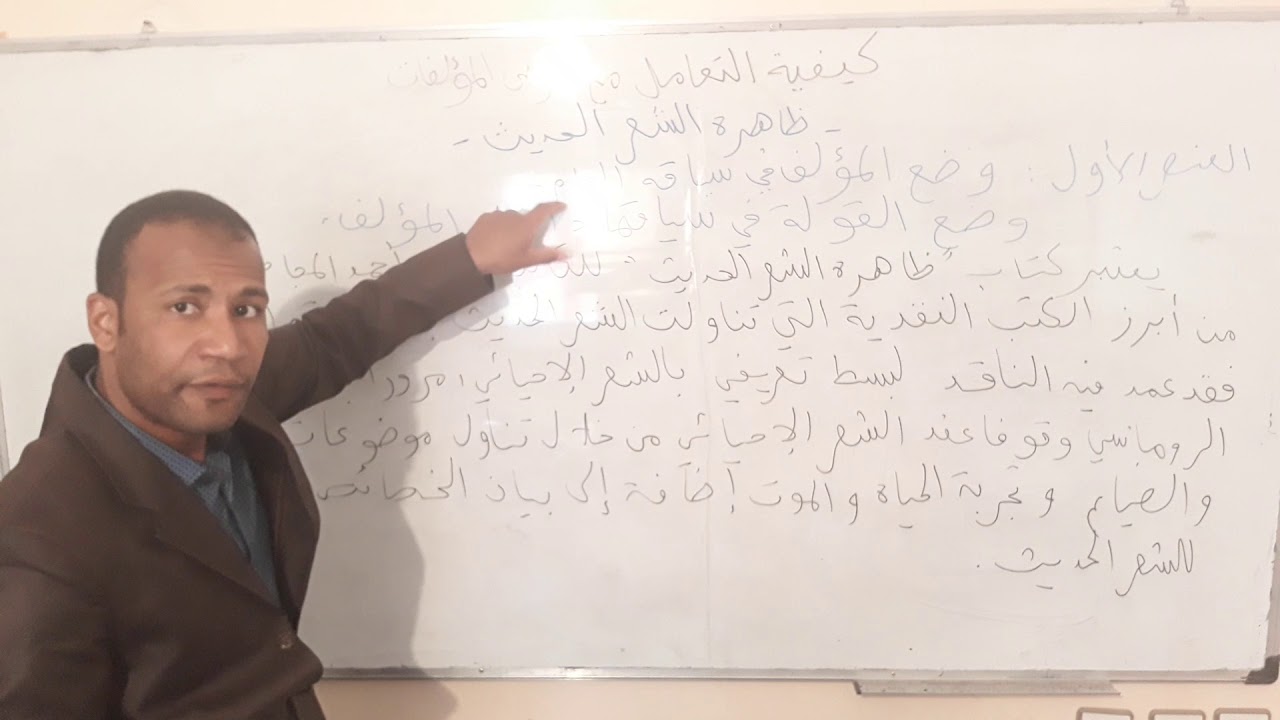 كيفية التعامل مع المؤلفات
- ظاهرة الشعر الحديث -
العنصر الأول: وضع المؤلف في سياقه
وضع القولة في سياقها المؤلف.
يعتبر كتاب "ظاهرة الشعر الحديث" أحمد
من أبرز الكتب النقدية التي تناولت الشعر الحديث
فقد عمد فيه الناقد لبسط تعريفي بالشعر الإحيائي، مرورا
الرومانسي وقوفا عند الشعر الإحيائي من خلال تناول موضوعات
والضياع وتجربة الحياة والموت إضافة إلى بيان الخصائص
للشعر الحديث.